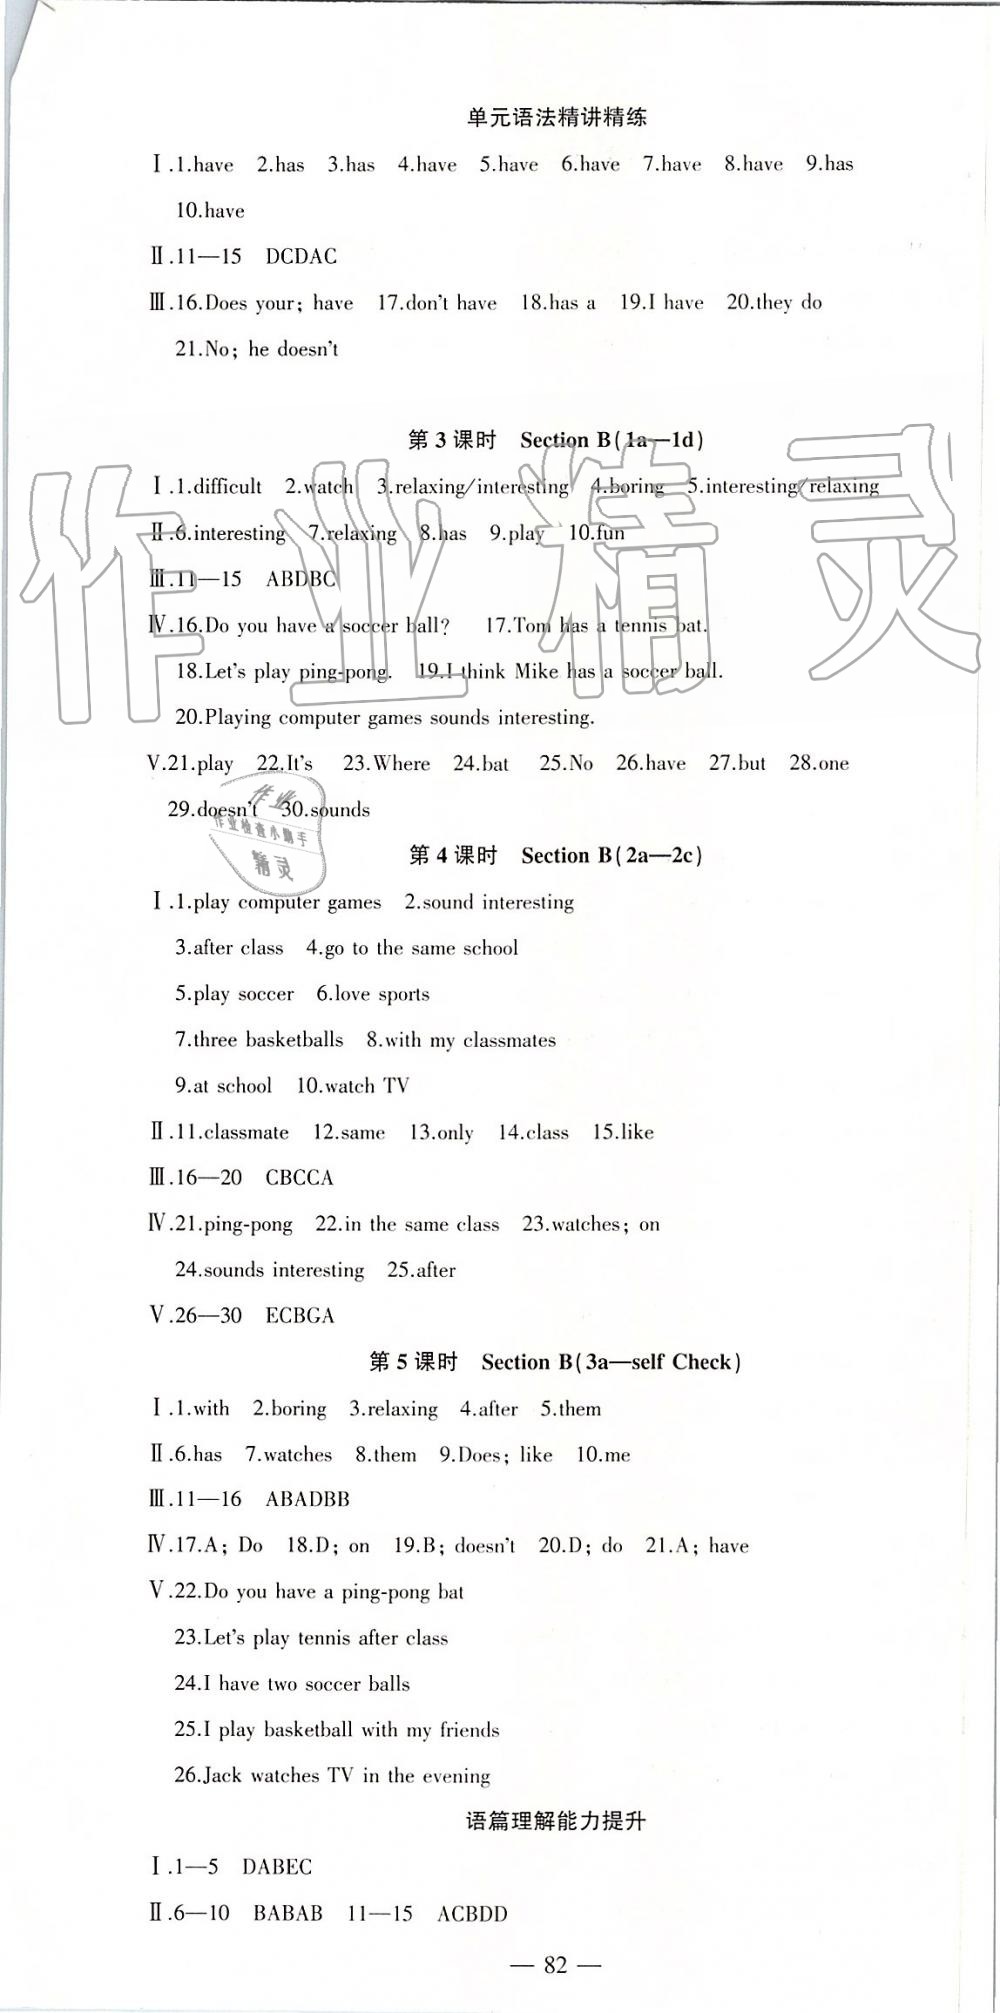 单元语法精讲精练
Ⅰ.1.have 2.has 3.has 4.have 5.have 6.have 7.have 8.have 9.has
10.have
Ⅱ.11—15 DCDAC
Ⅲ.16.Does your; have 17.don't have 18.has a 19.I have 20.they do
21.No; he doesn't
第3课时 Section B(1a—1d)
Ⅰ.1.difficult 2.watch 3.relaxing/interesting 4.boring 5.interesting/relaxing
Ⅱ.6.interesting 7.relaxing 8.has 9.play 10.fun
Ⅲ.11—15 ABDBC
Ⅳ.16.Do you have a soccer ball? 17.Tom has a tennis bat.
18.Let's play ping-pong. 19.I think Mike has a soccer ball.
20.Playing computer games sounds interesting.
Ⅴ.21.play 22.It's 23.Where 24.bat 25.No 26.have 27.but 28.one
29.doesn't 30.sounds
作业
作业检查小助手
精灵
第4课时 Section B(2a—2c)
Ⅰ.1.play computer games 2.sound interesting
3.after class 4.go to the same school
5.play soccer 6.love sports
7.three basketballs 8.with my classmates
9.at school 10.watch TV
Ⅱ.11.classmate 12.same 13.only 14.class 15.like
Ⅲ.16—20 CBCCA
Ⅳ.21.ping-pong 22.in the same class 23.watches; on
24.sounds interesting 25.after
Ⅴ.26—30 ECBGA
第5课时 Section B(3a—self Check)
Ⅰ.1.with 2.boring 3.relaxing 4.after 5.them
Ⅱ.6.has 7.watches 8.them 9.Does; like 10.me
Ⅲ.11—16 ABADBB
Ⅳ.17.A; Do 18.D; on 19.B; doesn't 20.D; do 21.A; have
Ⅴ.22.Do you have a ping-pong bat
23.Let's play tennis after class
24.I have two soccer balls
25.I play basketball with my friends
26.Jack watches TV in the evening
语篇理解能力提升
Ⅰ.1—5 DABEC
Ⅱ.6—10 BABAB 11—15 ACBDD
— 82 —
作业精灵